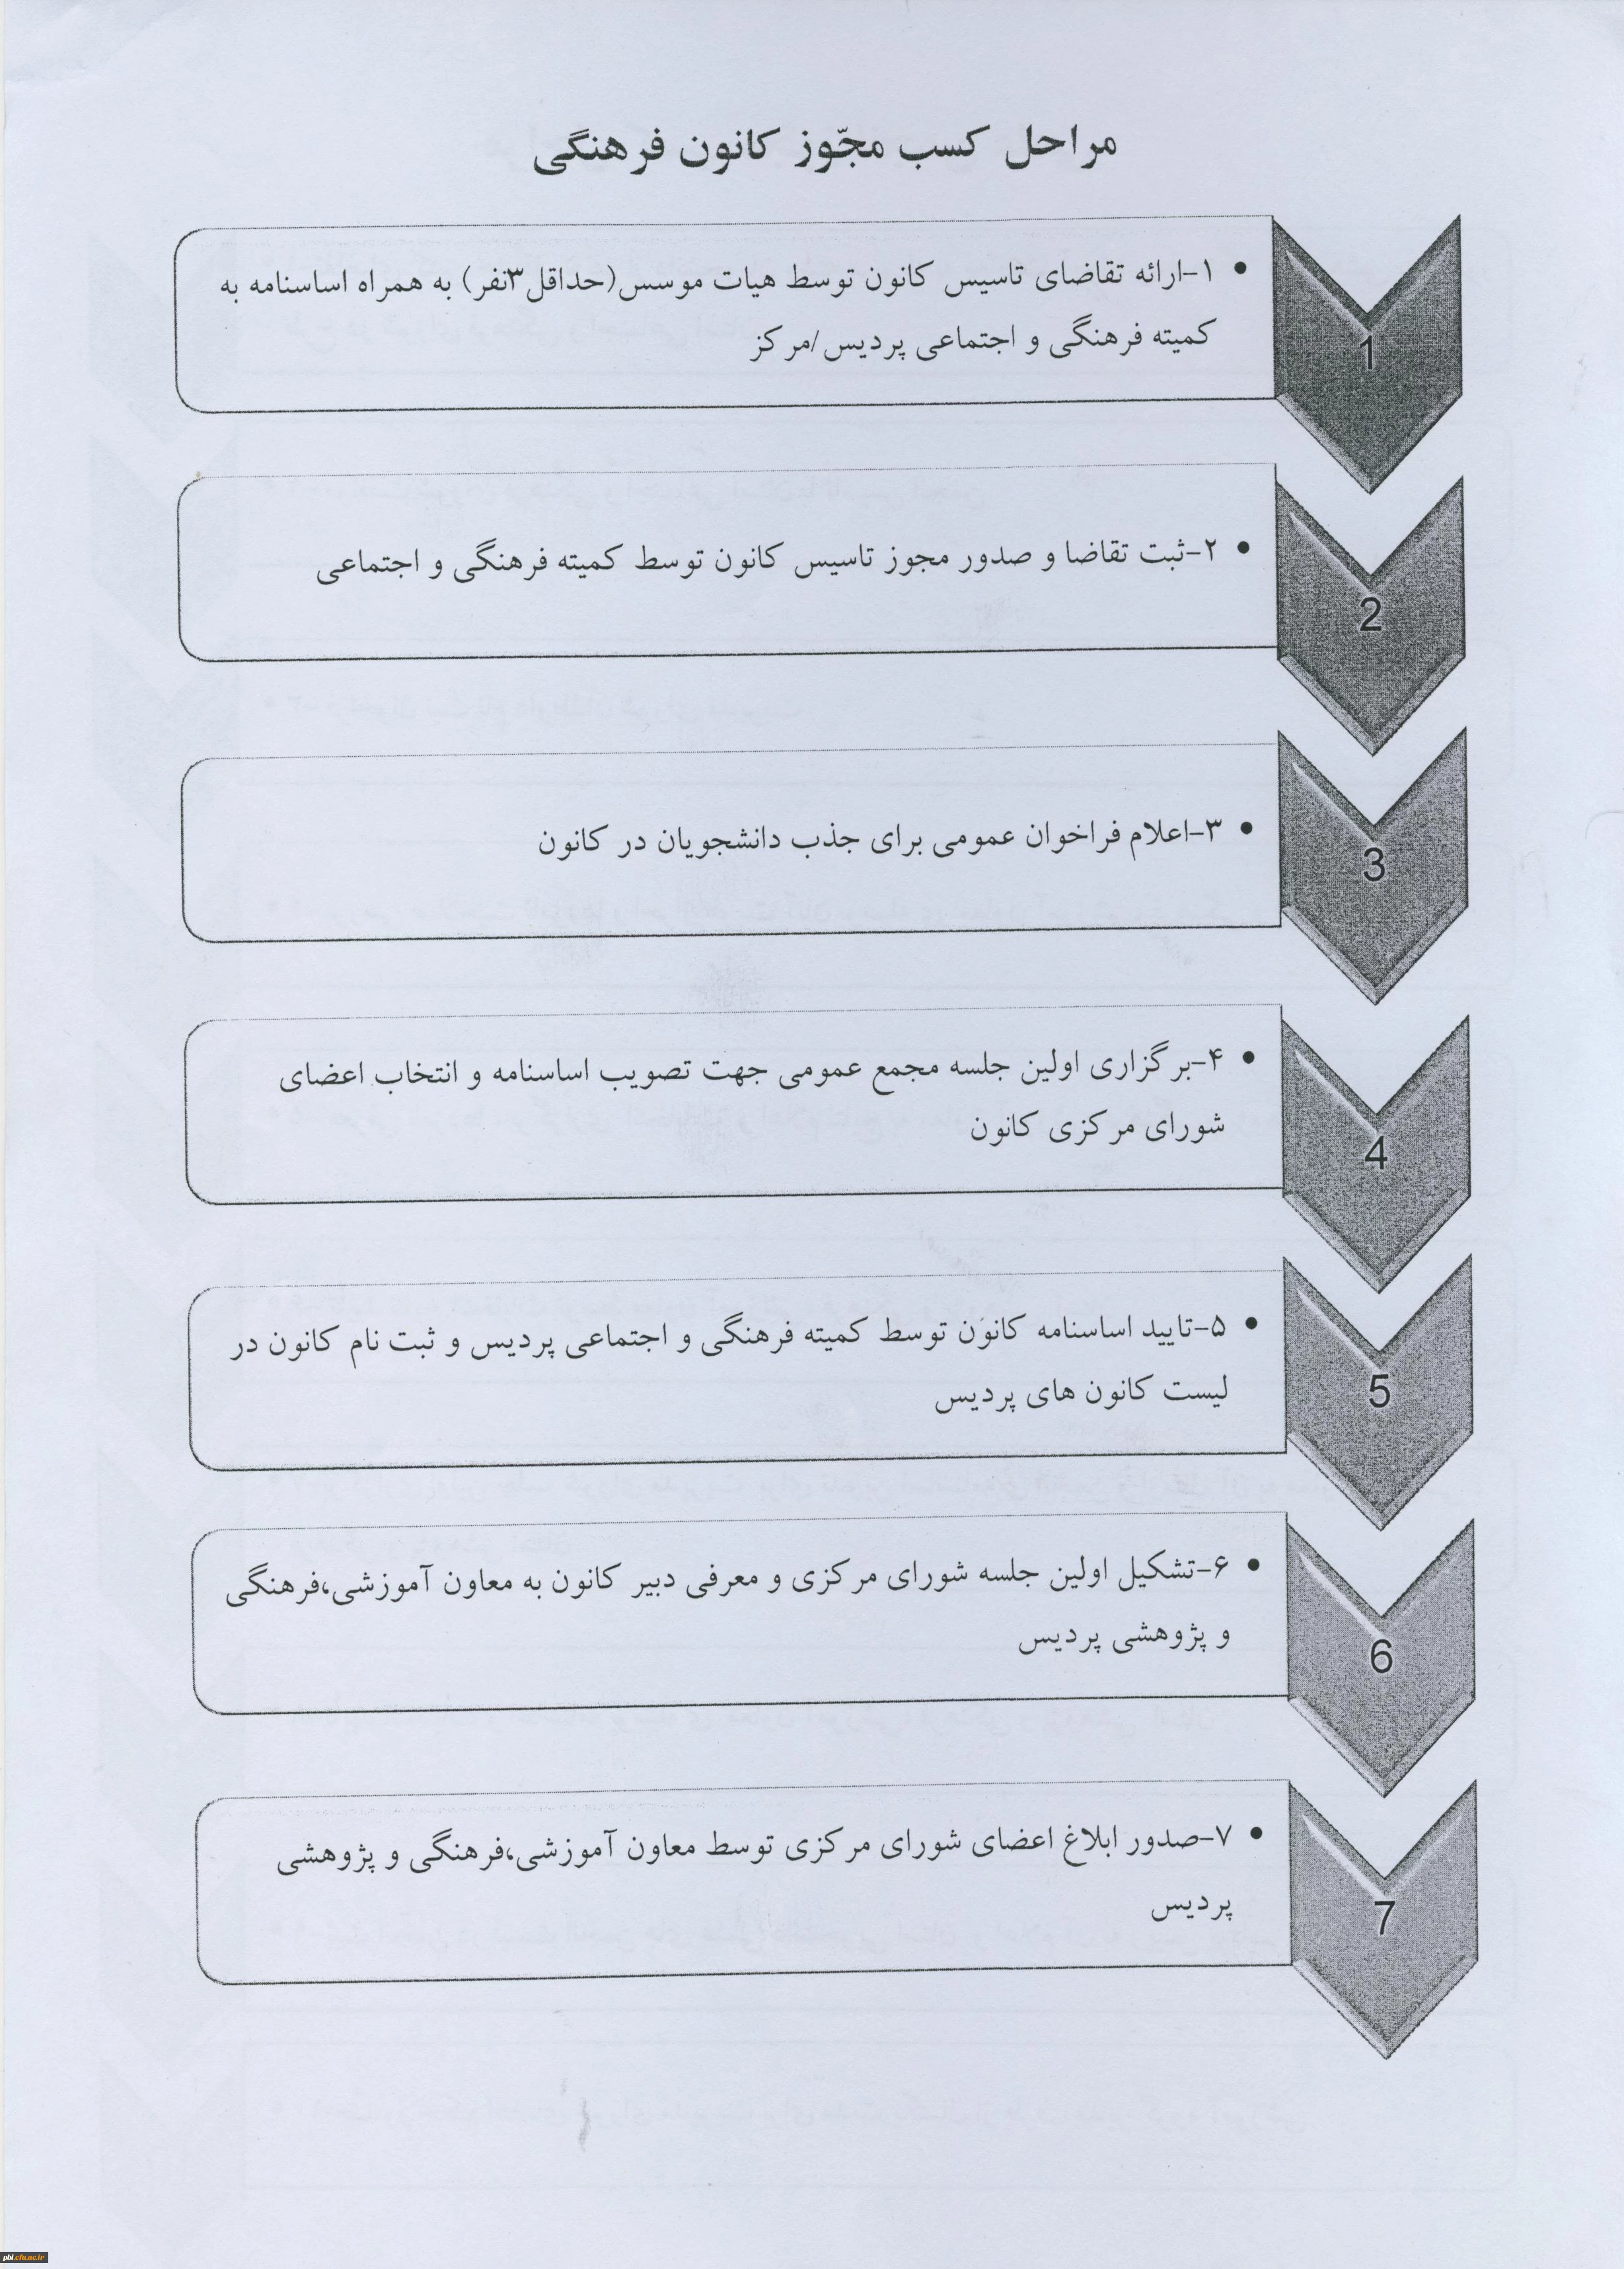 مراحل کسب مجّوز کانون فرهنگی
1
• ۱-ارائه تقاضای تاسیس کانون توسط هیات موسس(حداقل۳نفر) به همراه اساسنامه به
کمیته فرهنگی و اجتماعی پردیس/مرکز
2
• ۲-ثبت تقاضا و صدور مجوز تاسیس کانون توسط کمیته فرهنگی و اجتماعی
3
• ۳-اعلام فراخوان عمومی برای جذب دانشجویان در کانون
4
• ۴-برگزاری اولین جلسه مجمع عمومی جهت تصویب اساسنامه و انتخاب اعضای
شورای مرکزی کانون
5
• ۵-تایید اساسنامه کانون توسط کمیته فرهنگی و اجتماعی پردیس و ثبت نام کانون در
لیست کانون های پردیس
6
• ۶-تشکیل اولین جلسه شورای مرکزی و معرفی دبیر کانون به معاون آموزشی،فرهنگی
و پژوهشی پردیس
7
• ۷-صدور ابلاغ اعضای شورای مرکزی توسط معاون آموزشی،فرهنگی و پژوهشی
پردیس
pbl.cfu.ac.ir